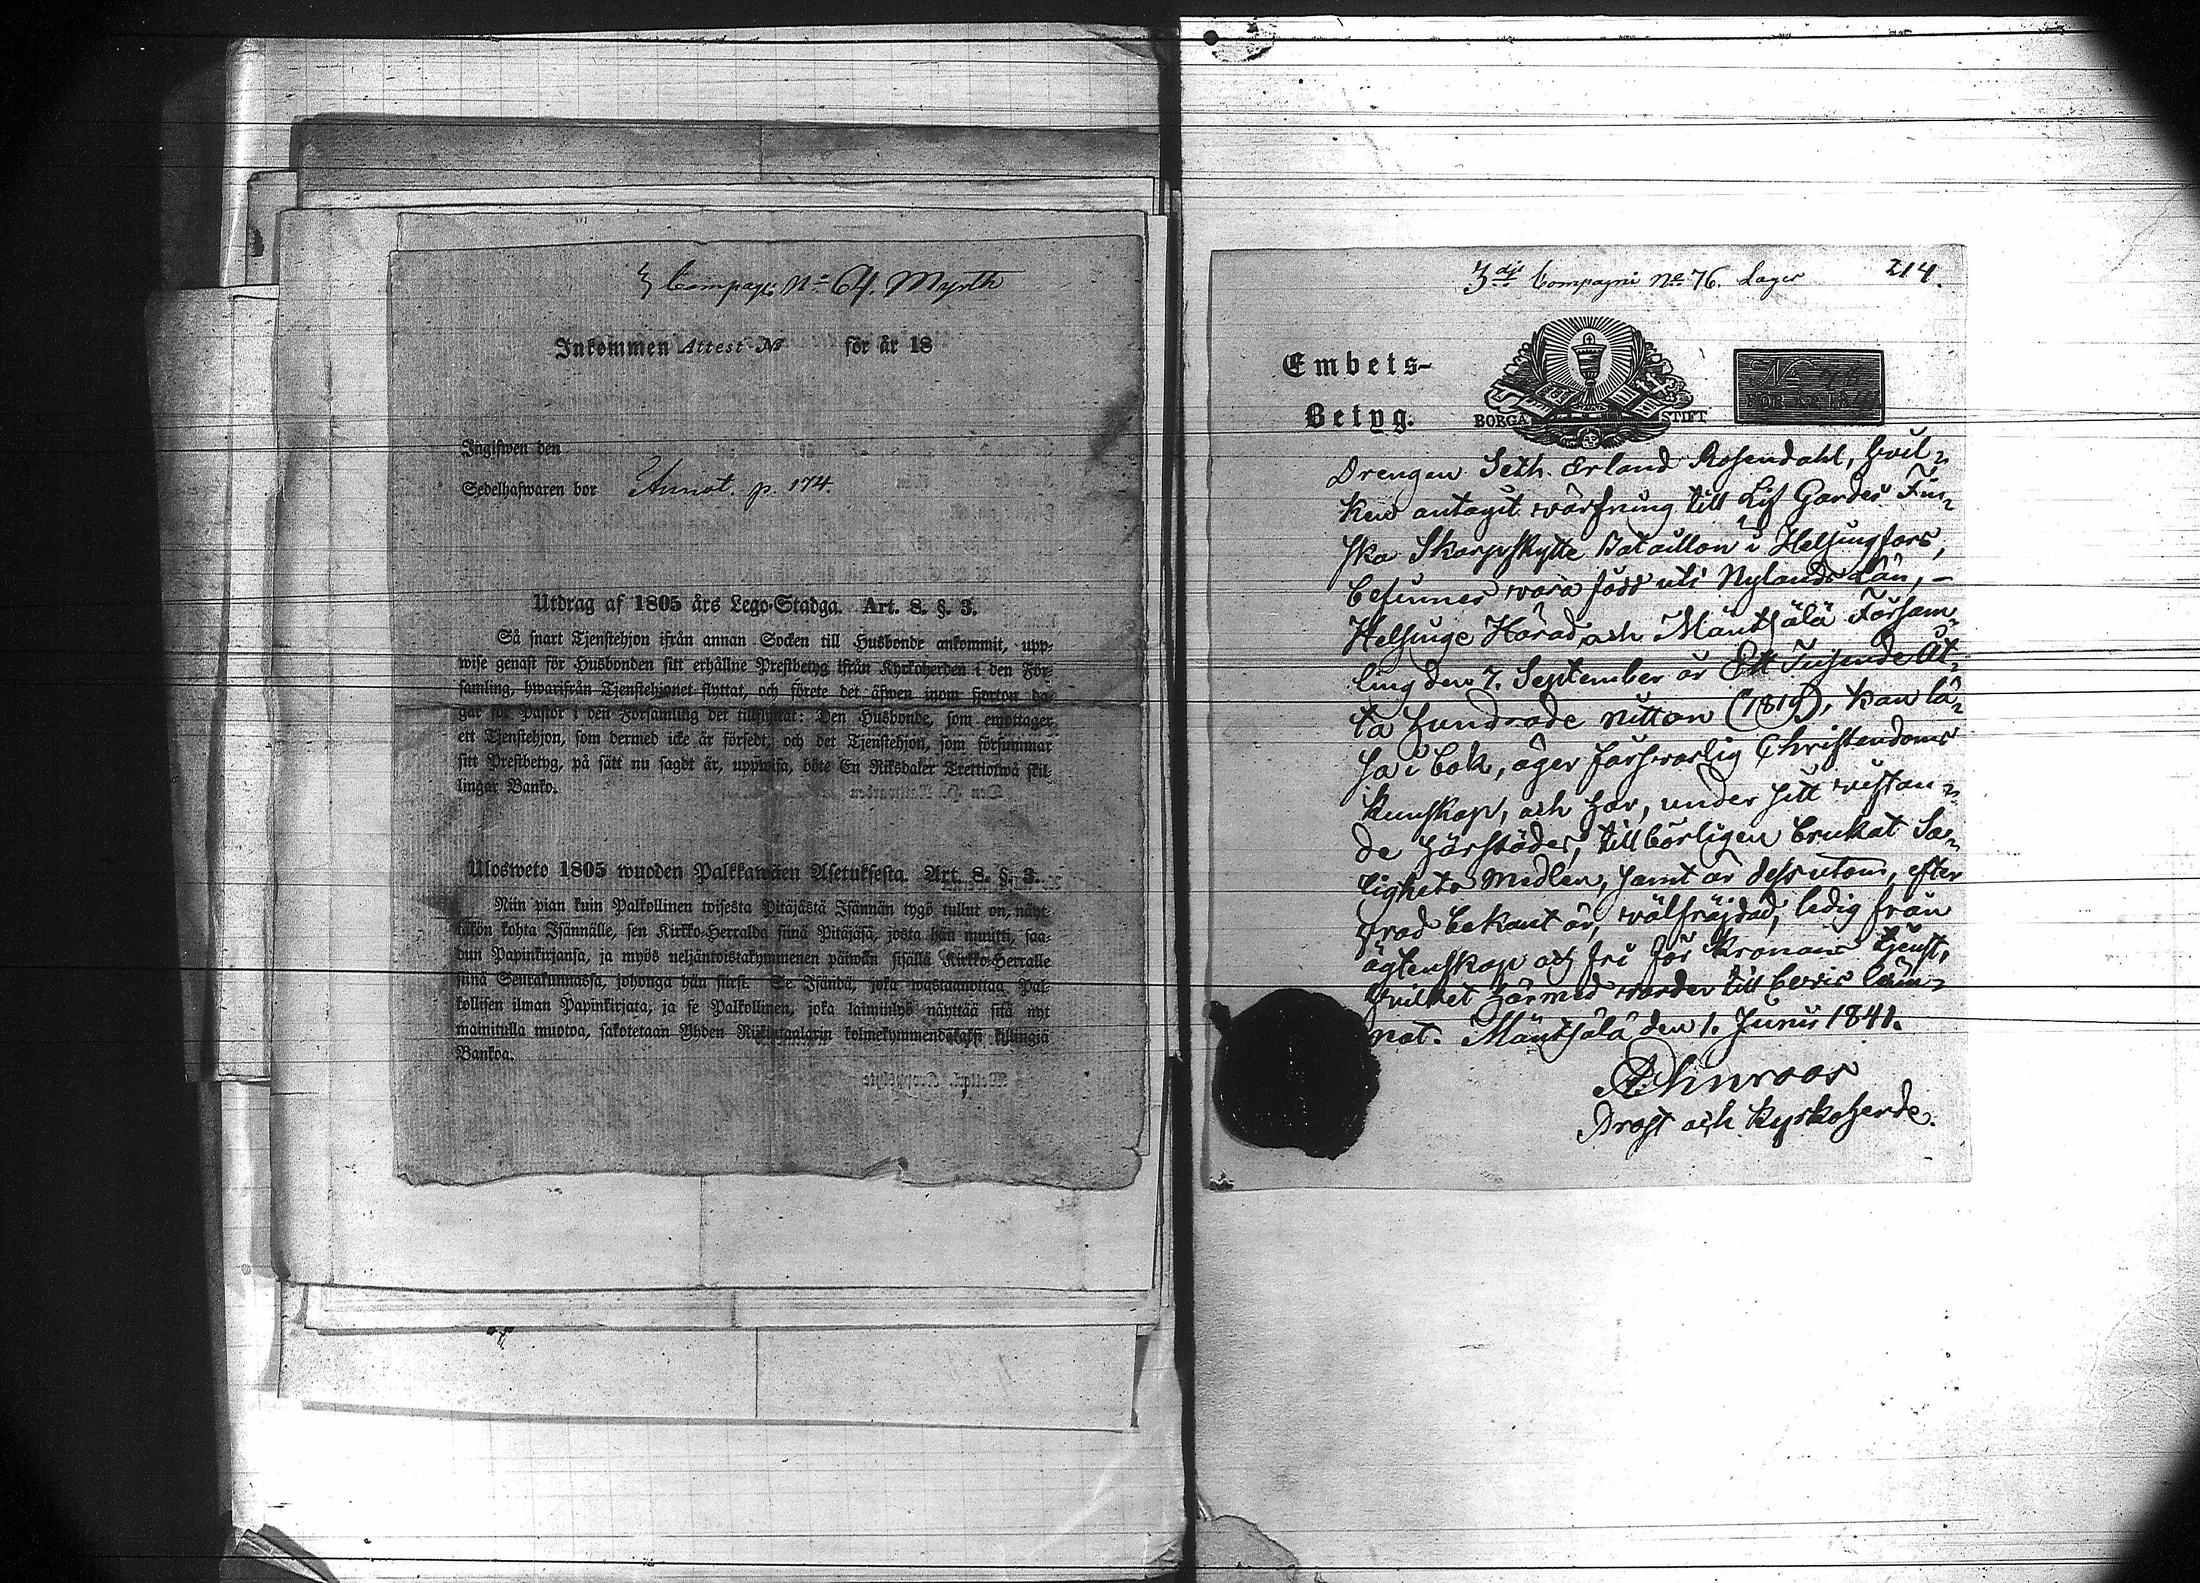 3 Compagi No 64. Myrth
Inkommen Attest No för år 18
Ingifwen den
Sedelhafwaren bor Annot. p. 174.
Utdrag af 1805 års Lego-Stadga. Art. 8. §. 3.
Så snart Tjenstehjon ifrån annan Socken till Husbonde ankommit, upp-
wise genast för Husbonden sitt erhållne Prestbetyg ifrån Kyrkoherden i den För-
samling, hwarifrån Tjenstehjonet flyttat, och förete det äfwen inom fjorton da-
gar för Pastor i den Församling det tillflyttat: Den Husbonde, som emottager
ett Tjenstehjon, som dermed icke är försedt, och det Tjenstehjon, som försummar
sitt Prestbetyg, på sätt nu sagdt är, uppwisa, böte En Riksdaler Trettiotwå skil-
lingar Banko.
Ulosweto 1805 wuoden Palkkawäen Asetuksesta. Art. 8. §. 3.
Niin pian kuin Palkollinen toisesta Pitäjästä Isännän tygö tullut on, näyt-
täkön kohta Isännälle, sen Kirkko-Herralda siinä Pitäjäsä, josta hän muutti, saa-
dun Papinkirjansa, ja myös neljäntoistakymmenen päiwän sisällä Kirkko-Herralle
siinä Seurakunnassa, johonga hän siirsi. Se Isändä, joka wastaanottaa Pal-
kollisen ilman Papinkirjata, ja se Palkollinen, joka laiminlyö näyttää sitä nyt
mainitulla muotoa, sakotetaan Yhden Riikintaalarin kolmekymmendäkaksi killingiä
Bankoa.
3dje Compagni No 76. Lager 214.
Embets-
Betyg.
BORGÅ STIFT
No
FÖR ÅR 18
Drengen Seth Erland Rosendahl, hvil-
ken antagit värfning till Lif Gardes Fin-
ska Skarpskytte Bataillon i Helsingfors,
befinnes vara född uti Nylands Län, -
Helsinge Härad och Mäntsälä Försam-
ling den 7. September år Ett Tusende Åt-
ta hundrade nitton (1819), kan lä-
sa i bok, äger försvarlig Christendoms
kunskap, och har, under sitt vistan-
de härstädes, tillbörligen brukat Sa-
lighets medlen, samt är dessutom, efter
hvad bekant är, välfräjdad, ledig från
ägtenskap och fri för Kronans tjenst,
hvilket härmed varder till bevis läm-
nat. Mäntsälä den 1. Junii 1841.
Prost och Kyrkoherde.